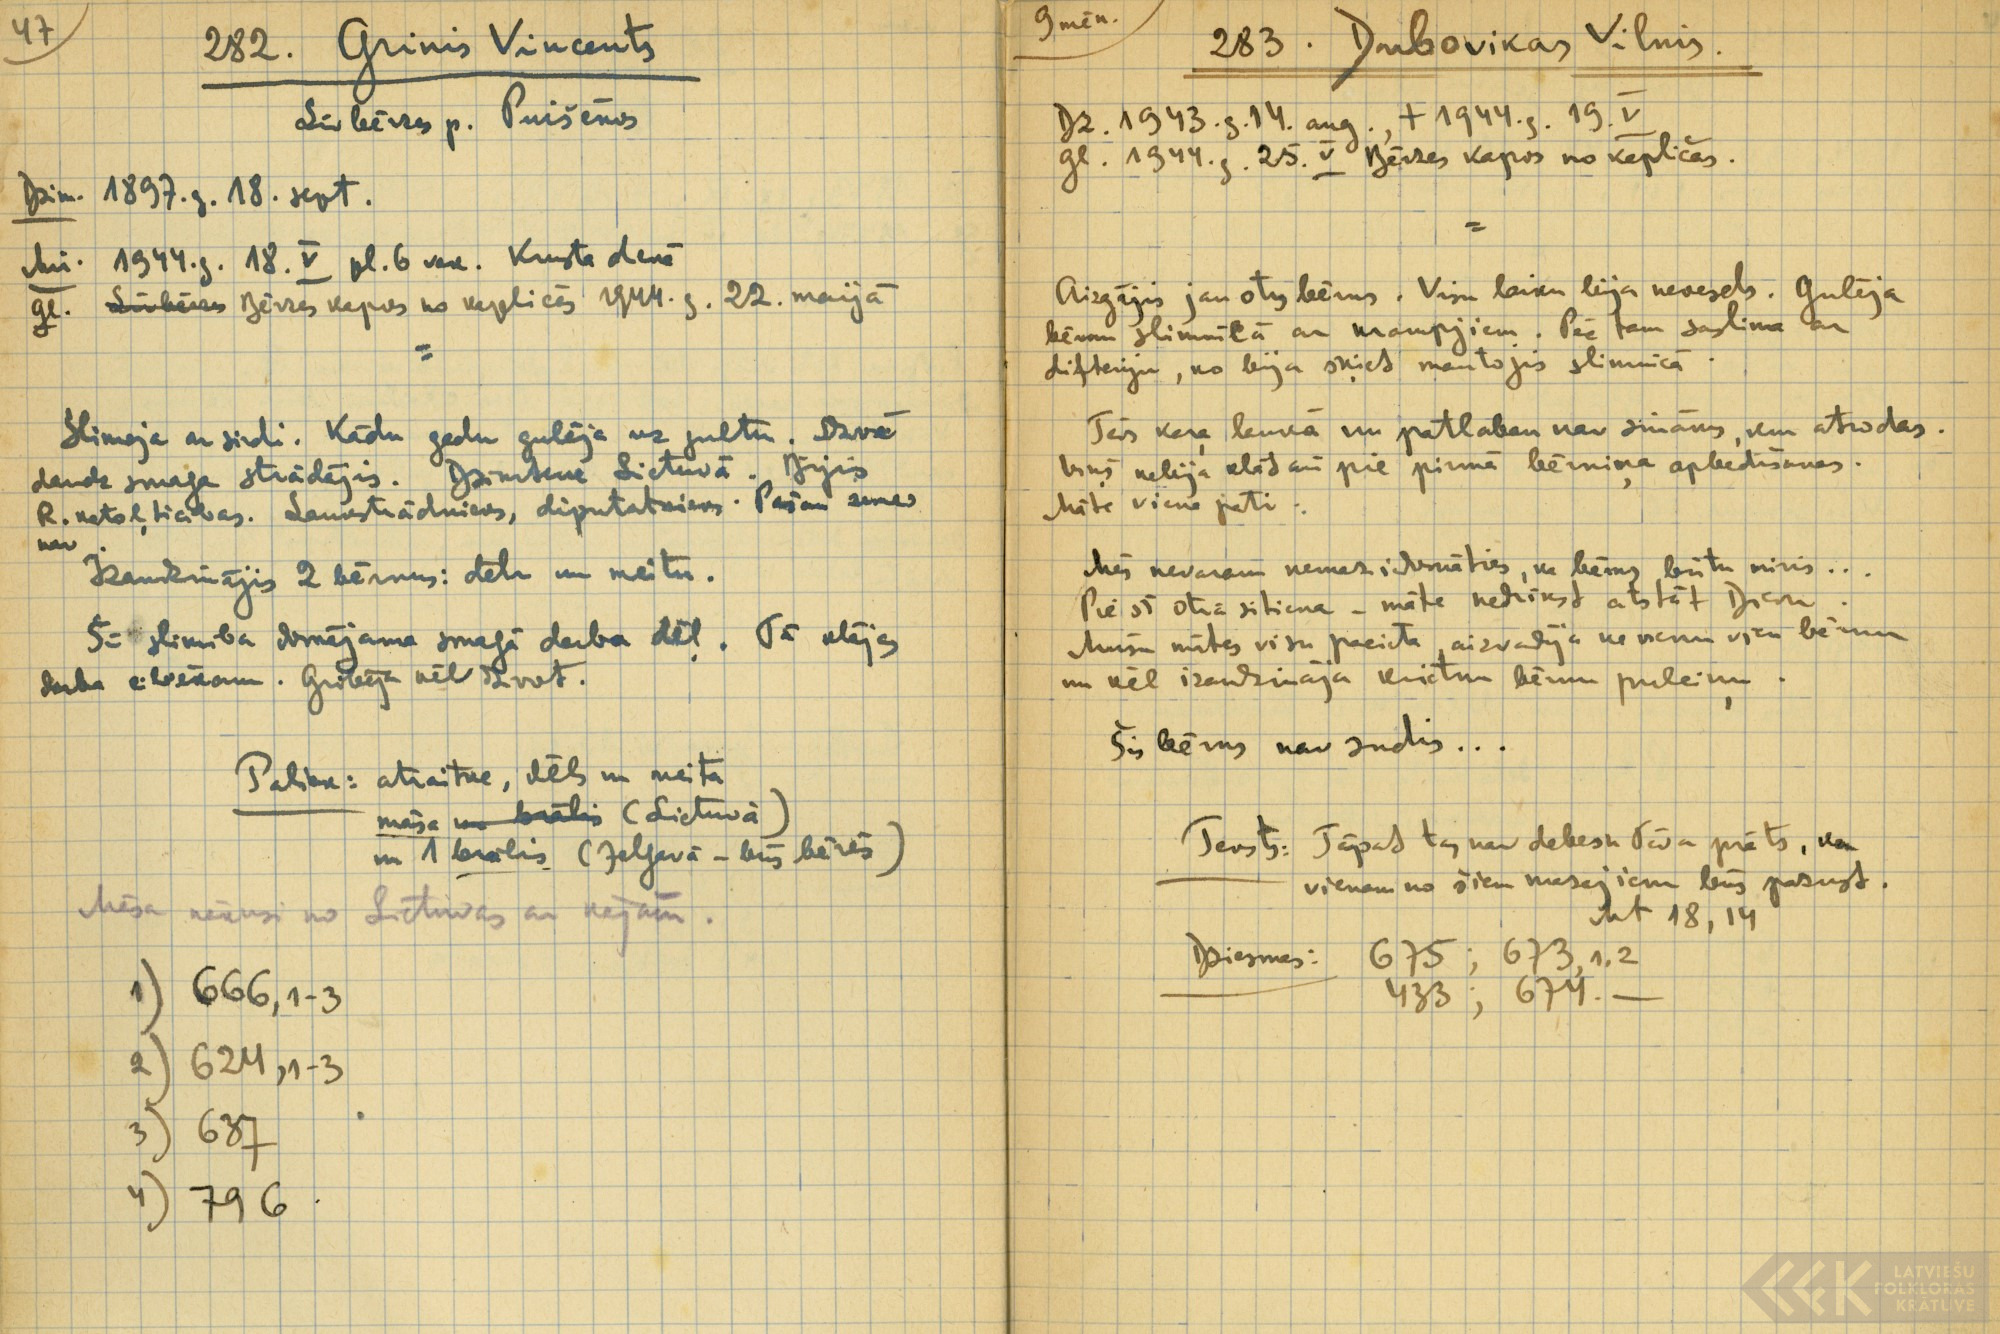 47
282. Grinis Vincents
Līvbērzes p. Puišēnos
Dzim. 1897.g. 18. sept.
Mir. 1944.g. 18. V pl. 6 vak. Krusta dienā
gl. Līvbērzes Bērzes kapos no kapličas 1944.g. 22. maijā
=
Slimoja ar sirdi. Kādu gadu gulēja uz gultu. Dzīvē
daudz smaga strādājis. Dzimtene Lietuvā. Bijis
R. katoļticības. Laukstrādnieks, diputatnieks. Pašam zemes
nav.
Izaudzinājis 2 bērnus: dēlu un meitu.
Šī slimība domājama smagā darba dēļ. Tā klājas
darba cilvēkam. Gribēja vēl dzīvot.
Paliek: atraitne, dēls un meita
māsa un brālis (Lietuvā)
un 1 brālis (Jelgavā – būs bērēs)
Māsa nākusi no Lietuvas ar kājām.
1) 666, 1-3
2) 624, 1-3
3) 637
4) 796.
9 mēn.
283. Dubovikas Vilnis.
Dz. 1943.g. 14. aug., + 1944.g. 19. V
gl. 1944.g. 25. V Bērzes kapos no kapličas.
=
Aizgājis jau otrs bērns. Visu laiku bija nevesels. Gulēja
bērnu slimnīcā ar krampjiem. Pēc tam saslima ar
difteriju, ko bija šķiet mantojis slimnīcā.
Tēvs kara laukā un patlaban nav zināms, kur atrodas.
Viņš nebija klāt arī pie pirmā bērniņa apbedīšanas.
Māte viena pati.
Mēs nevaram nemaz iedomāties, ka bērns būtu miris...
Pie šī otrā sitiena – māte nedrīkst atstāt Dievu.
Mūsu mātes visu pacieta, aizvadīja ne vienu vien bērnu
un vēl izaudzināja krietnu bērnu pulciņu.
Šis bērns nav zudis...
Teksts: Tāpat tas nav debesu Tēva prāts, ka
vienam no šiem mazajiem būs pazust.
Mt 18, 14
Dziesmas: 675; 673, 1.2
433; 674. —
LATVIEŠU
FOLKLORAS
KRĀTUVE